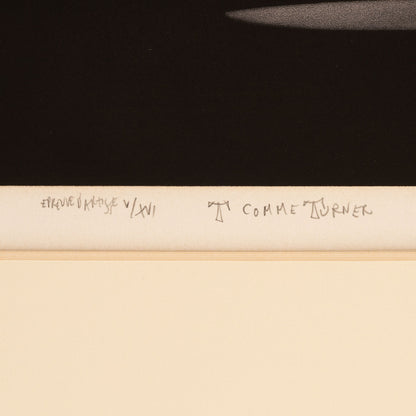 EPREUVE D'ARTISTE V/XVI T COMME TURNER